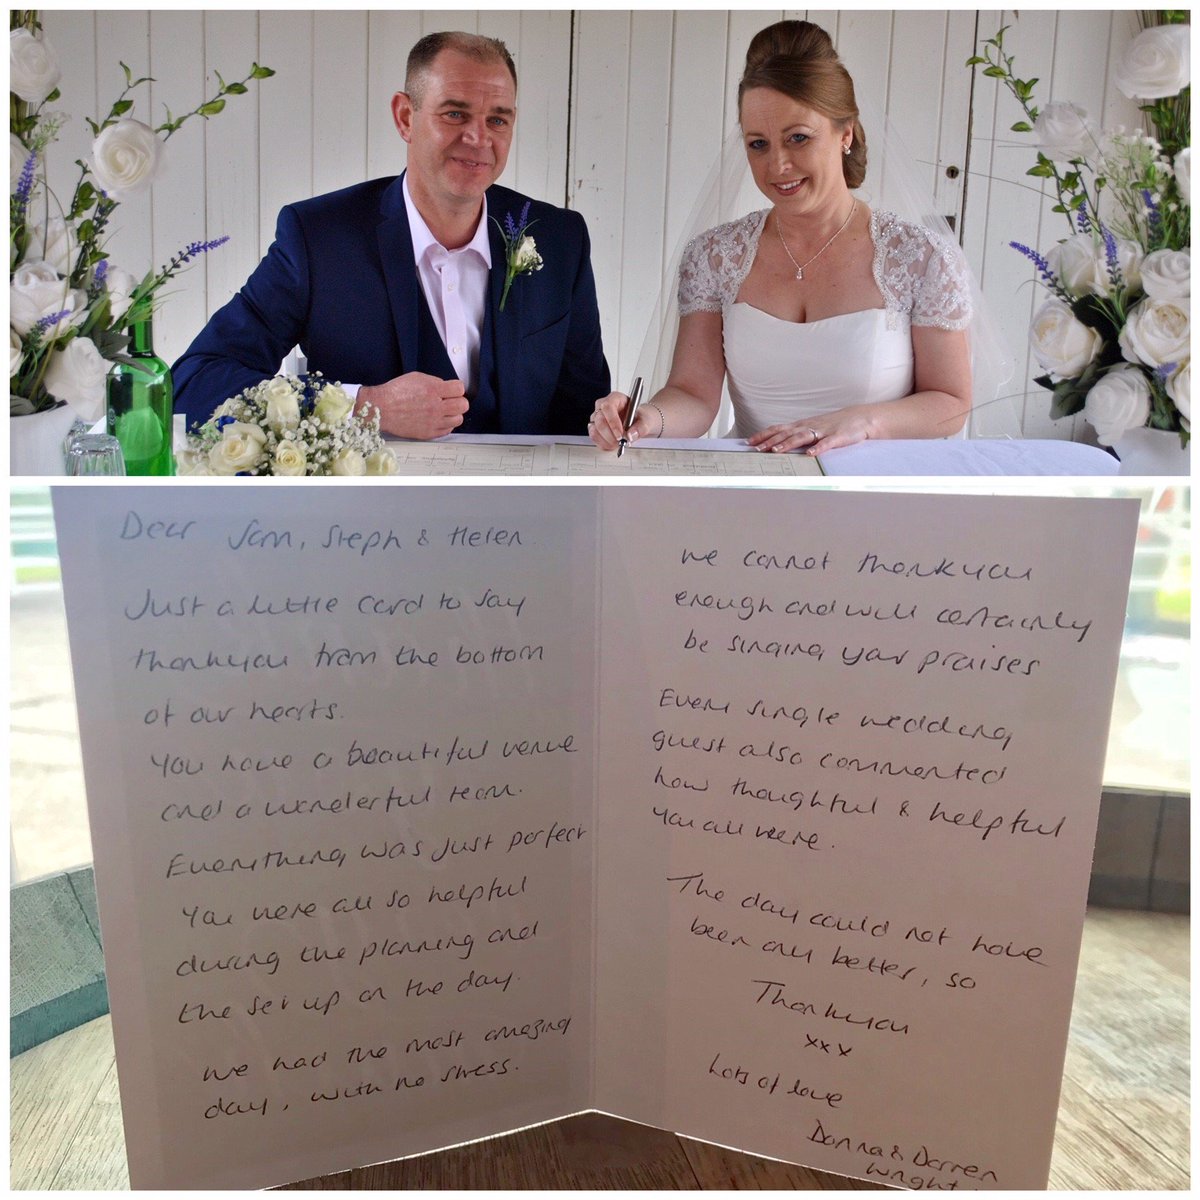 Dear Sam, Steph & Helen.
Just a little card to say
thankyou from the bottom
of our hearts.
You have a beautiful venue
and a wonderful team.
Everything was just perfect
You were all so helpful
during the planning and
the set up on the day.
We had the most amazing
day, with no stress.
We cannot thankyou
enough and will certainly
be singing your praises
Every single wedding
guest also commented
how thoughtful & helpful
you all were.
The day could not have
been any better, so
Thankyou
xxx
Lots of love
Donna & Darren
Wright